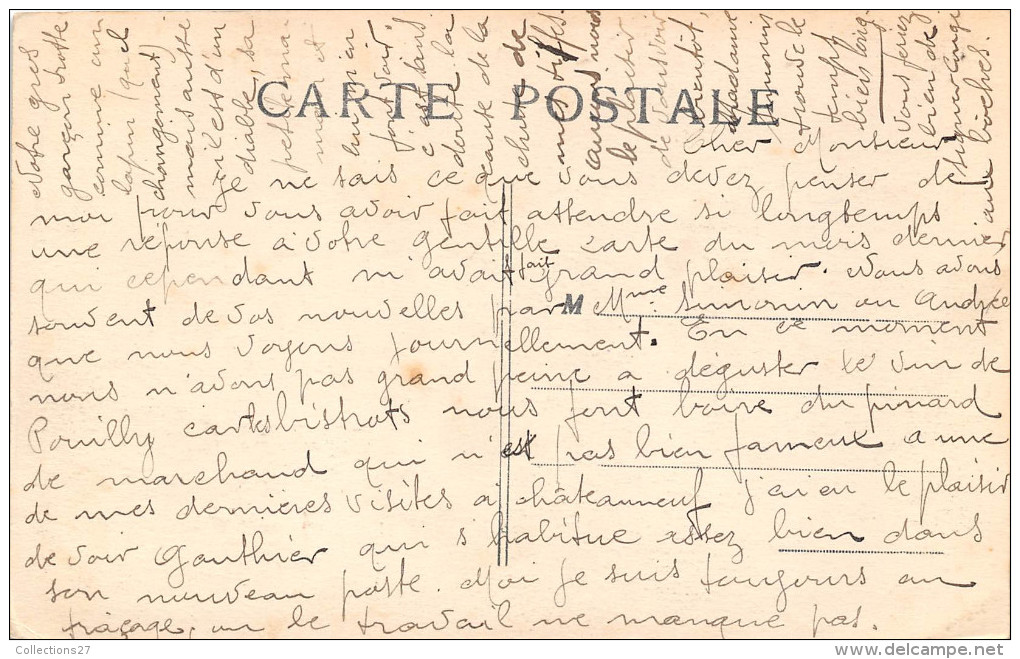 CARTE POSTALE
Cher Monsieur
Je ne sais ce que vous devez penser de
moi pour vous avoir fait attendre si longtemps
une réponse à votre gentille carte du mois dernier
qui cependant m'avait fait grand plaisir. Nous avons
souvent de vos nouvelles par Mme Simonin ou Andrée
M
que nous voyons journellement. En ce moment
nous n'avons pas grand peine a déguster le vin de
Pouilly car les bistrots nous font boire du pinard
de marchand qui n'est pas bien fameux a une
de mes dernières visites à châteauneuf j'ai eu le plaisir
de voir Gauthier qui s'habitue assez bien dans
son nouveau poste. Moi je suis toujours au
traçage, ou le travail ne manque pas.
Votre gros
garçon trotte
comme un
lapin (quel
changement)
mais aussi
qu'il est d'un
diable, sa
petite ma
man et
bien
c'est sans
doute la
cause de la
chute de
nous
le plaisir
de vous voir
bientôt,
madame
Simonin
trouve le
temps
bien long
vous
bien de
aux boches.
Collections27
delcampe.net